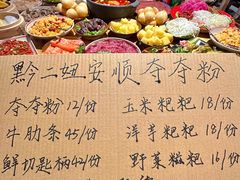 黔二妞安顺夺夺粉
夺夺粉 12/份
玉米粑粑 18/份
牛肋条 45/份
洋芋粑粑 18/份
鲜切匙柄 42/份
野菜糍粑 16/份